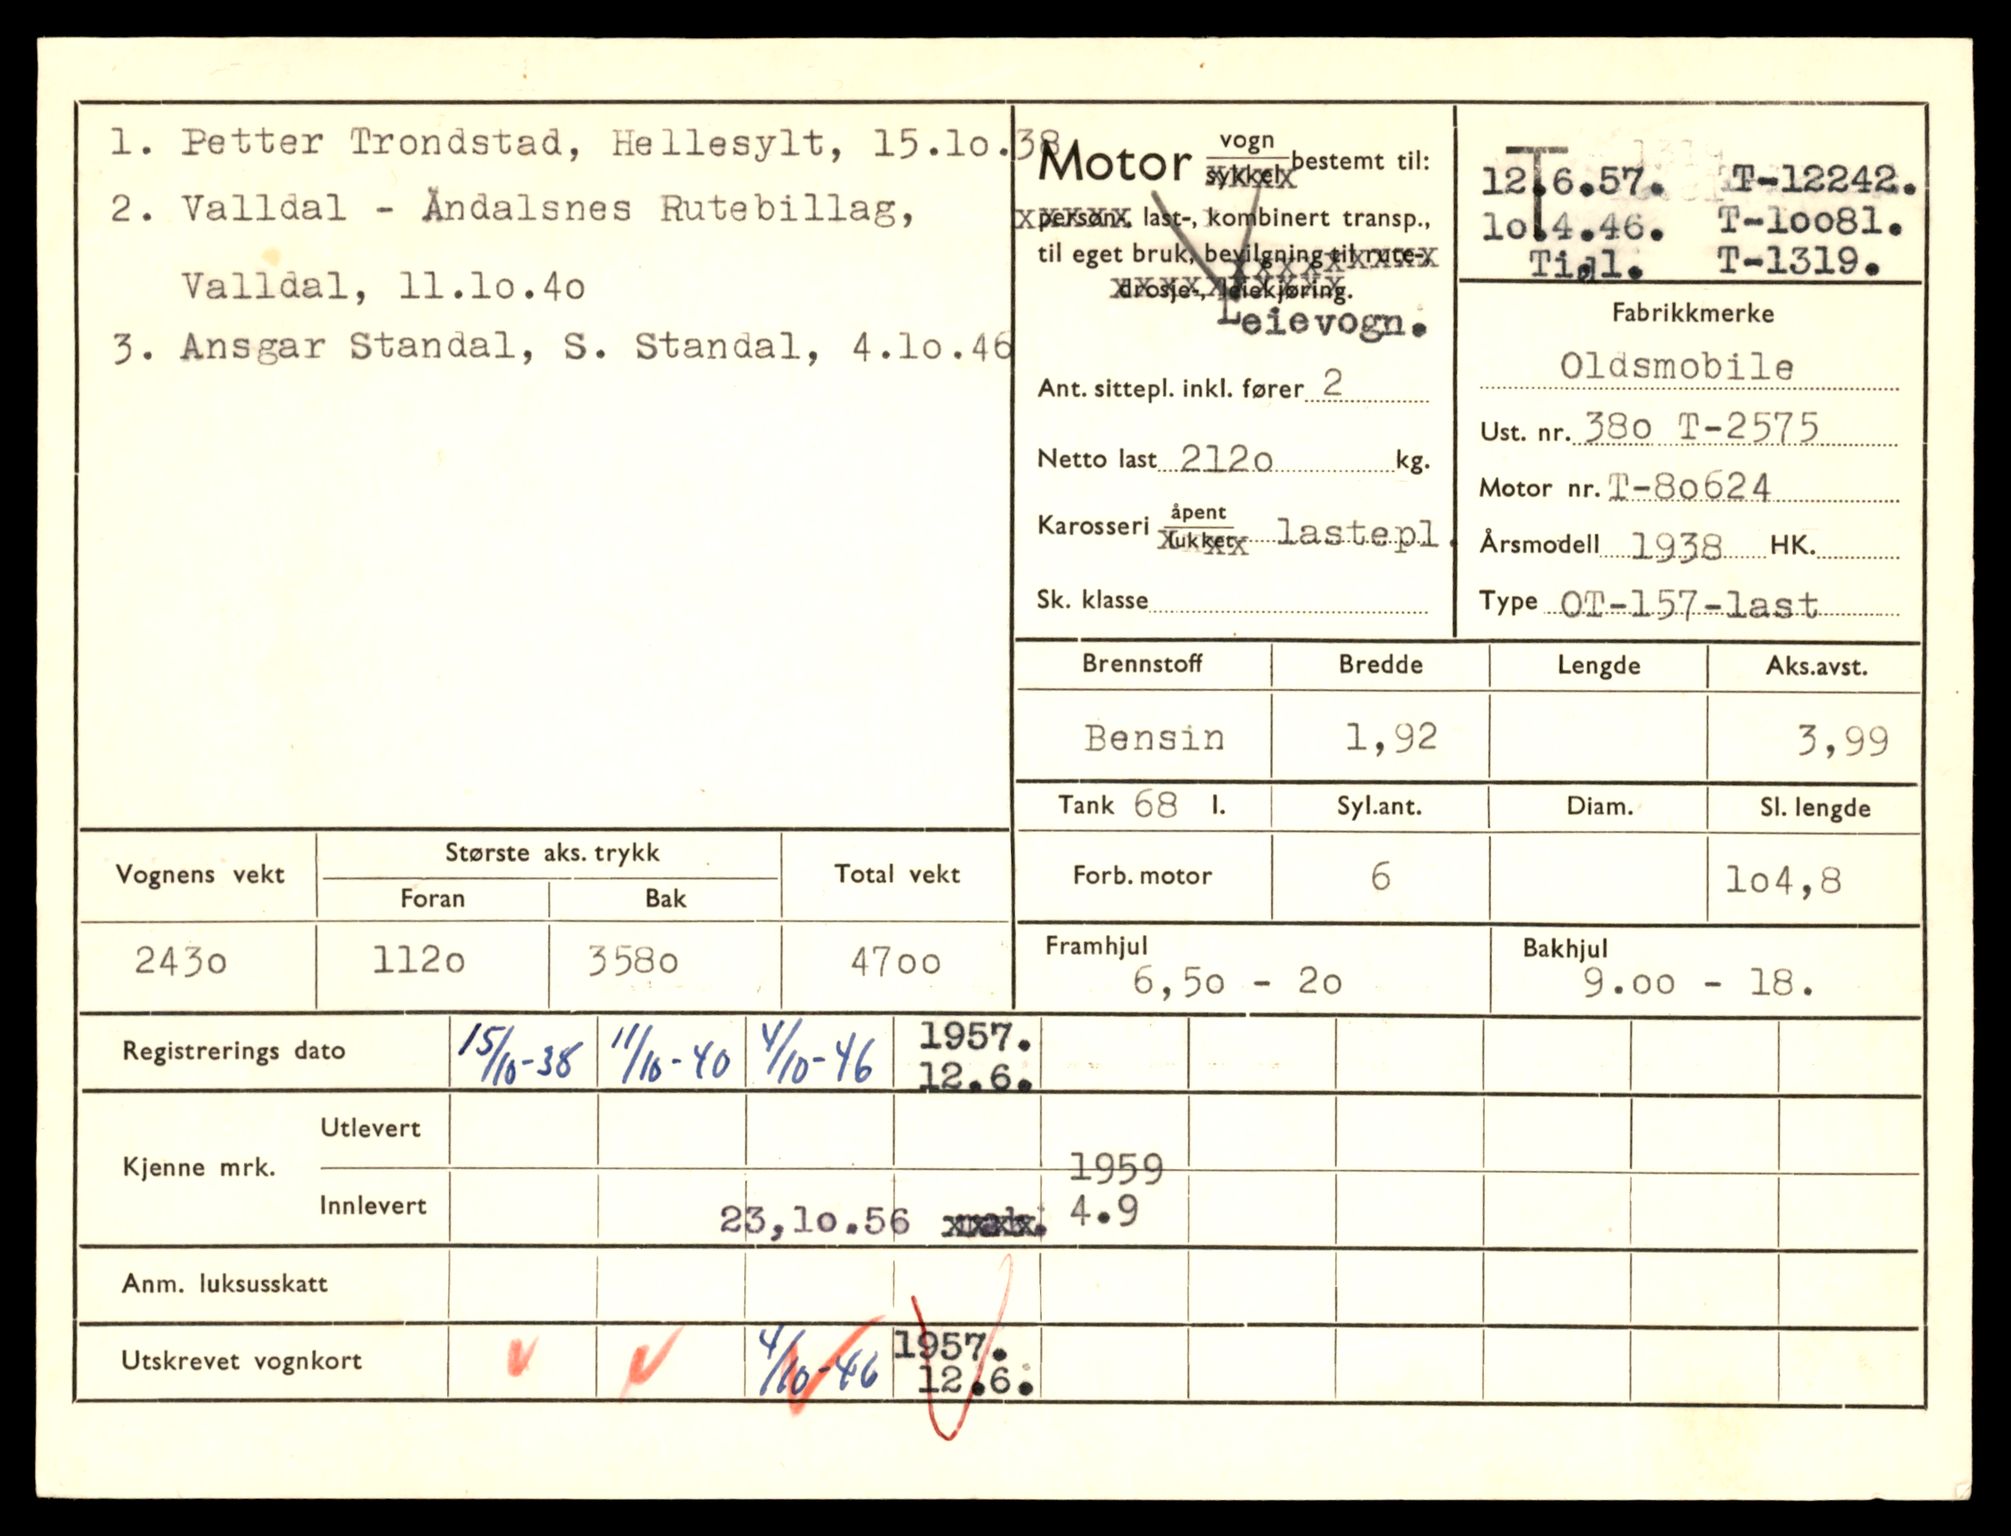 1. Petter Trondstad, Hellesylt, 15.10.38
2. Valldal - Åndalsnes Rutebillag,
Valldal, 11.10.40
3. Ansgar Standal, S. Standal, 4.10.46
Motor vogn
sykkel bestemt til:
person-, last-, kombinert transp.,
til eget bruk, bevilgning til rute-,
drosje-, leiekjøring.
Leievogn.
Ant. sittepl. inkl. fører 2
Netto last 2120 kg.
Karosseri åpent
lukket lastepl.
Sk. klasse
T
12.6.57. T-12242.
10.4.46. T-10081.
Tidl. T-1319.
Fabrikkmerke
Oldsmobile
Ust. nr. 380 T-2575
Motor nr. T-80624
Årsmodell 1938 HK.
Type OT-157-last
Brennstoff Bredde Lengde Aks.avst.
Bensin 1,92 3,99
Tank 68 l. Syl.ant. Diam. Sl. lengde
Forb. motor 6 104,8
Framhjul Bakhjul
6,50 - 20 9.00 - 18.
Vognens vekt Største aks. trykk Total vekt
Foran Bak
2430 1120 3580 4700
Registrerings dato 15/10-38 11/10-40 4/10-46 1957.
12.6.
Kjenne mrk. Utlevert
1959
Innlevert 23,10.56 4.9
Anm. luksusskatt
Utskrevet vognkort 4/10-46 1957.
12.6.